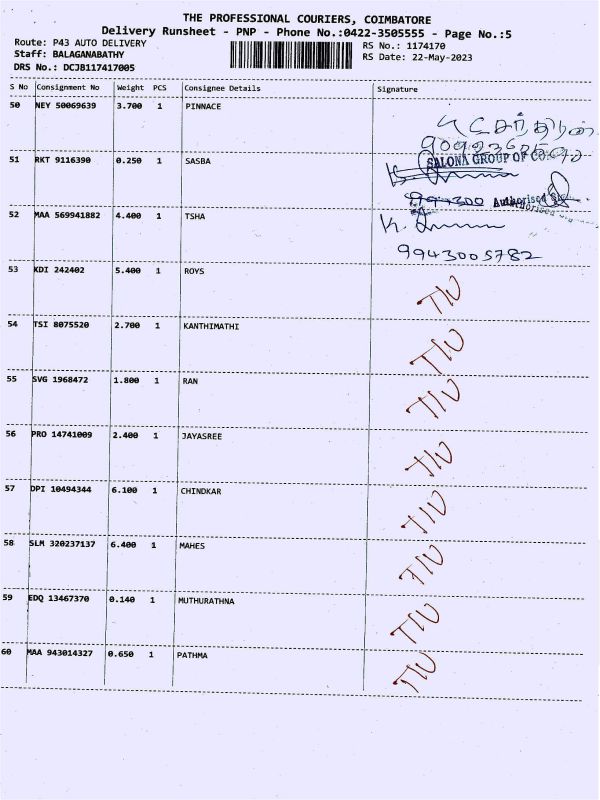 THE PROFESSIONAL COURIERS, COIMBATORE
Delivery Runsheet - PNP - Phone No.:0422-3505555 - Page No.:5
Route: P43 AUTO DELIVERY
RS No.: 1174170
Staff: BALAGANABATHY
RS Date: 22-May-2023
DRS No.: DCJB117417005
S No Consignment No Weight PCS Consignee Details Signature
50 NEY 50069639 3.700 1 PINNACE
51 RKT 9116390 0.250 1 SASBA
SALONA GROUP OF CO.
Authorised
52 MAA 569941882 4.400 1 TSHA
9943005782
53 KDI 242402 5.400 1 ROYS T/W
54 TSI 8075520 2.700 1 KANTHIMATHI T/W
55 SVG 1968472 1.800 1 RAN T/W
56 PRO 14741009 2.400 1 JAYASREE T/W
57 DPI 10494344 6.100 1 CHINDKAR T/W
58 SLM 320237137 6.400 1 MAHES T/W
59 EDQ 13467370 0.140 1 MUTHURATHNA T/W
60 MAA 943014327 0.650 1 PATHMA T/W